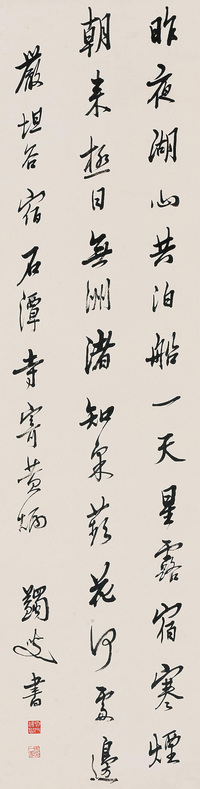 昨夜湖心共泊船一天星露宿寒煙
朝來極日無洲渚知泉蓛花何處邊
嚴坦谷宿石潭寺寄黃炳 蠲叟書